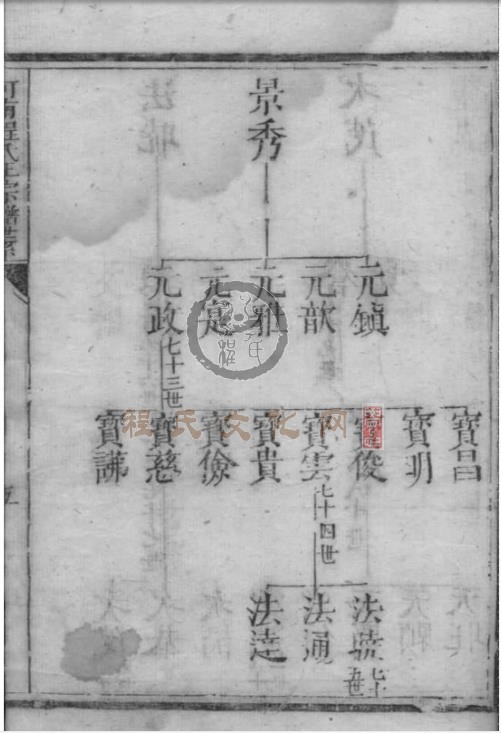 景秀
元鎮
元歆
元雅
元寔
元政七十三世
寶昌
寶玥
寶俊
寶雲七十四世
寶貴
寶儉
寶慈
寶講
法通
法達
程氏文化网